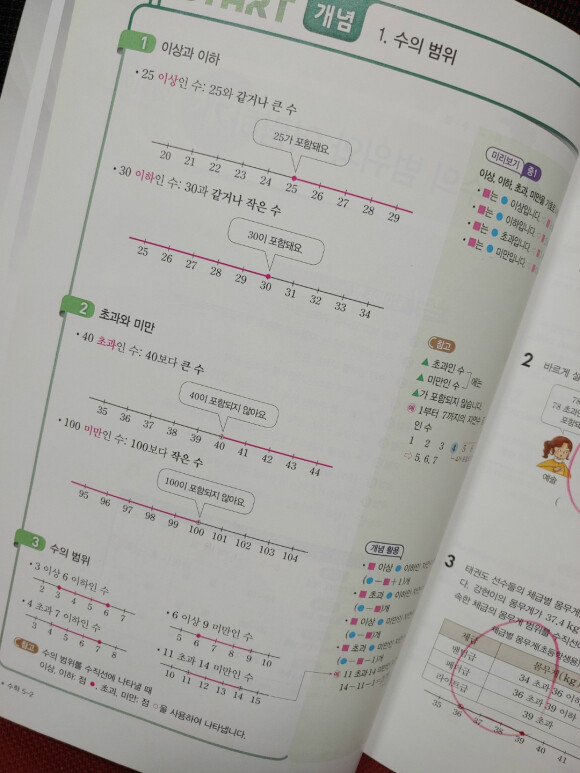 START 개념 1. 수의 범위
1 이상과 이하
• 25 이상인 수: 25와 같거나 큰 수
25가 포함돼요.
20 21 22 23 24 25 26 27 28 29
• 30 이하인 수: 30과 같거나 작은 수
30이 포함돼요.
25 26 27 28 29 30 31 32 33 34
2 초과와 미만
• 40 초과인 수: 40보다 큰 수
40이 포함되지 않아요.
35 36 37 38 39 40 41 42 43 44
• 100 미만인 수: 100보다 작은 수
100이 포함되지 않아요.
95 96 97 98 99 100 101 102 103 104
3 수의 범위
• 3 이상 6 이하인 수
2 3 4 5 6 7
• 4 초과 7 이하인 수
3 4 5 6 7 8
• 6 이상 9 미만인 수
5 6 7 8 9 10
• 11 초과 14 미만인 수
10 11 12 13 14 15
참고 수의 범위를 수직선에 나타낼 때
이상, 이하: 점 ●, 초과, 미만: 점 ○을 사용하여 나타냅니다.
수학 5-2
미리보기 중1
이상, 이하, 초과, 미만을 기호로
• ■는 ● 이상입니다.
• ■는 ● 이하입니다.
• ■는 ● 초과입니다.
• ■는 ● 미만입니다.
참고
▲ 초과인 수
▲ 미만인 수 에는
▲가 포함되지 않습니다.
예 1부터 7까지의 자연수
인 수
1 2 3 4 5
⇨ 5, 6, 7
개념 활용
• ■ 이상 ● 이하인
(●−■+1)개
• ■ 초과 ● 이하인
(●−■)개
• ■ 이상 ● 미만인
(●−■)개
• ■ 초과 ● 미만인
(●−■−1)개
예 11 초과 14
14−11−1
2 바르게
78
78 초과인
포함돼
예슬
3 태권도 선수들의 체급별 몸무게
다. 강현이의 몸무게가 37.4 kg
속한 체급의 몸무게 범위를 수직선에
체급별 몸무게(초등학생용
체급 몸무게(kg
밴텀급 34 초과 36 이하
페더급 36 초과 39 이하
라이트급 39 초과
35 36 37 38 39 40 41